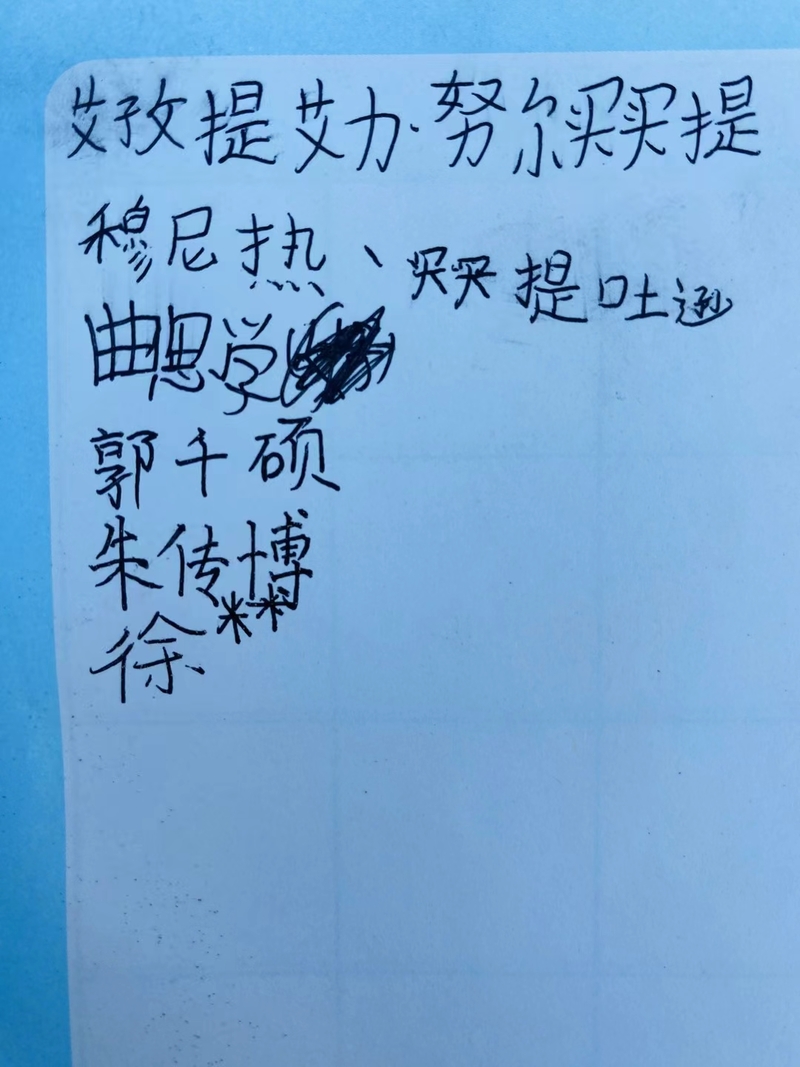 艾孜提艾力·努尔买买提
穆尼热、买买提吐逊
曲思学
郭千硕
朱传博
徐**